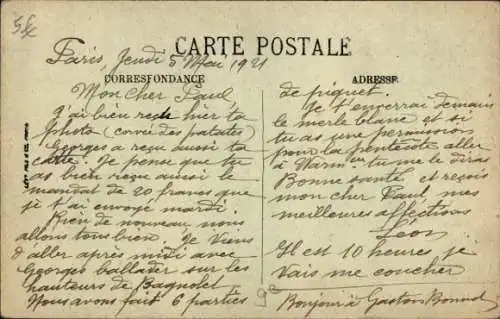 CARTE POSTALE
Paris, Jeudi 5 Mai 1921
CORRESPONDANCE
Mon cher Paul
J'ai bien reçu hier ta
photo (corvée des patates)
Georges a reçu aussi ta
carte. Je pense que tu
as bien reçu aussi le
mandat de 20 francs que
je t'ai envoyé mardi.
Rien de nouveau, nous
allons tous bien. Je viens
d'aller après midi avec
Georges ballader sur les
hauteurs de Bagnolet
Nous avons fait 6 parties
ADRESSE
de piquet.
Je t'enverrai demain
le merle blanc et si
tu as une permission
pour la pentecôte aller
à tu me le diras
Bonne santé et reçois
mon cher Paul, mes
meilleures affections
Léon
Il est 10 heures je
vais me coucher
Bonjour à Gaston